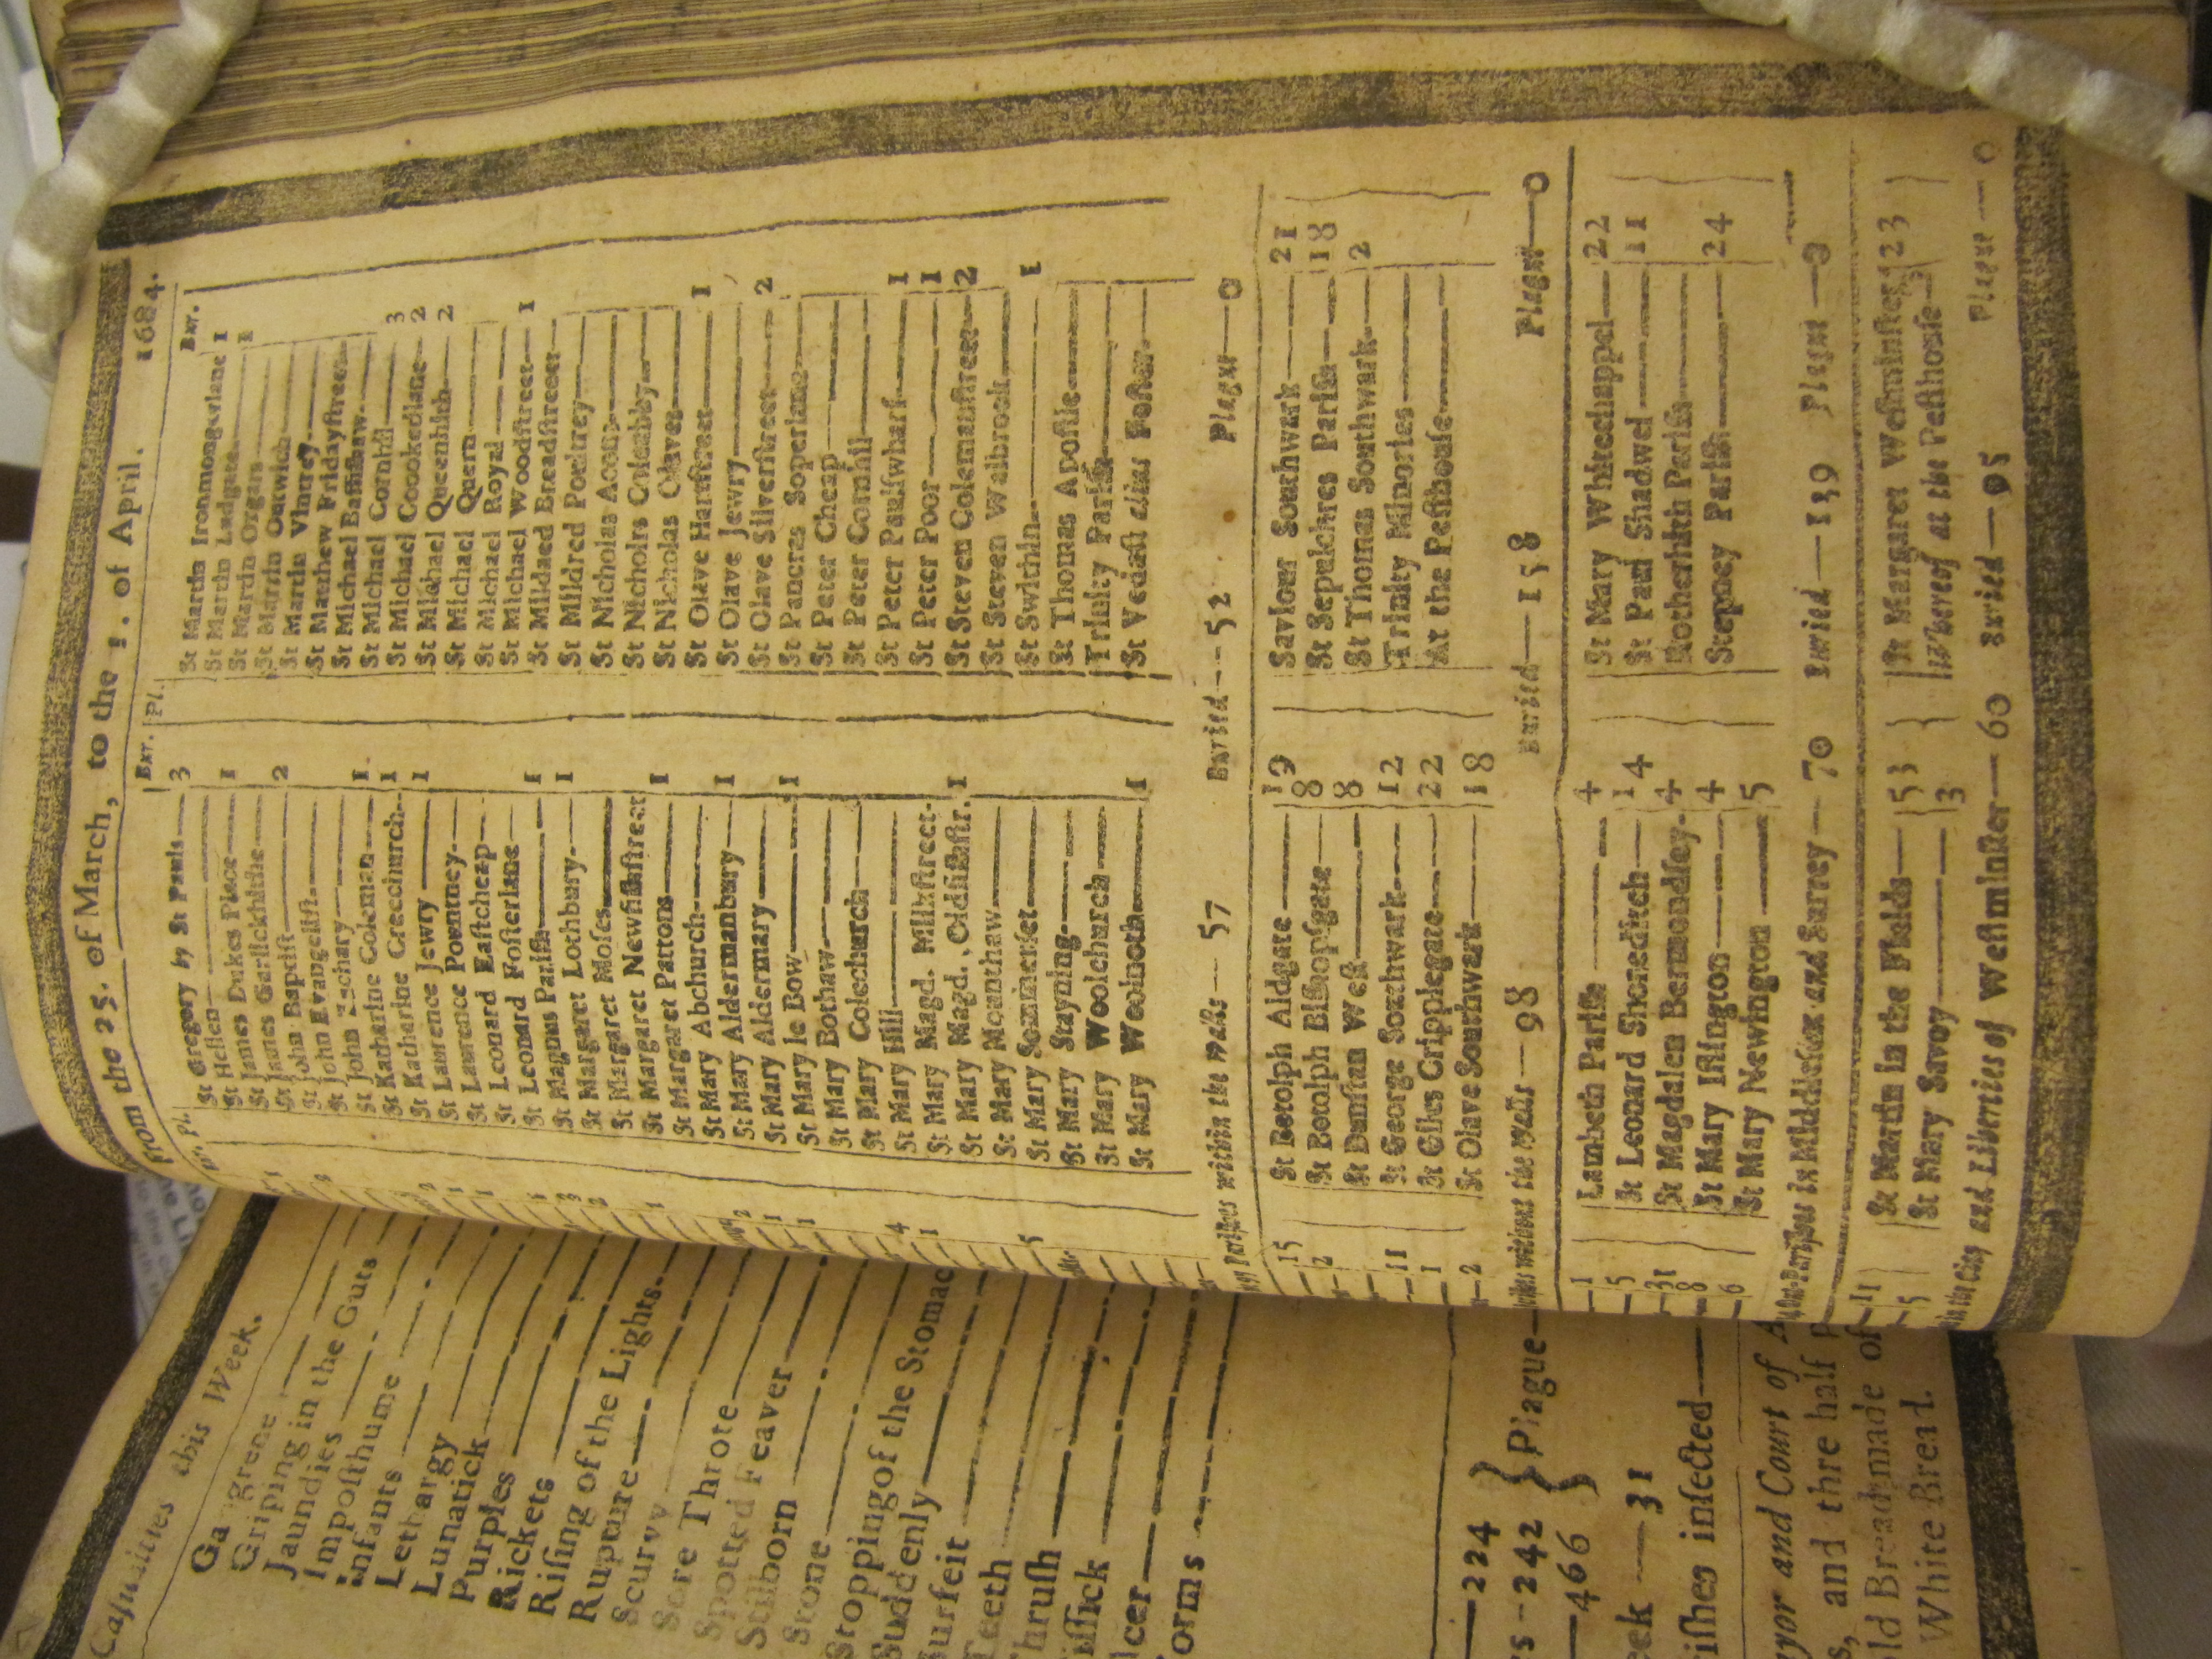 From the 25. of March, to the 1. of April. 1684.
Bur. Pl.
St Gregory by St Pauls 3
St Hellen
St James Dukes Place 1
St James Garlickhithe
St John Baptist 2
St John Evangelist
St John Zachary
St Katharine Coleman 1
St Katharine Creechurch 1
St Lawrence Jewry 1
St Lawrence Powntney
St Leonard Eastcheap
St Leonard Fosterlane
St Magnus Parish 1
St Margaret Lothbury 1
St Margaret Moses
St Margaret Newfishstreet
St Margaret Pattons 1
St Mary Abchurch
St Mary Aldermanbury 1
St Mary Aldermary
St Mary le Bow 1
St Mary Bothaw
St Mary Colechurch
St Mary Hill
St Mary Magd. Milkstreet
St Mary Magd. Oldfishstr. 1
St Mary Mounthaw
St Mary Sommerset
St Mary Stayning
St Mary Woolchurch
St Mary Woolnoth 1
Bur. Pl.
St Martin Ironmongerlane 1
St Martin Ludgate 1
St Martin Orgars
St Martin Outwich
St Martin Vintrey
St Matthew Fridaystreet
St Michael Bassishaw
St Michael Cornhil 3
St Michael Crookedlane 2
St Michael Queenhith 2
St Michael Quern
St Michael Royal
St Michael Woodstreet 1
St Mildred Breadstreet
St Mildred Poultrey
St Nicholas Acons
St Nicholas Coleabby
St Nicholas Olaves
St Olave Hartstreet 1
St Olave Jewry
St Olave Silverstreet 2
St Pancras Soperlane
St Peter Cheap
St Peter Cornhil
St Peter Paulswharf 1
St Peter Poor 1
St Steven Colemanstreet 2
St Steven Walbrook
St Swithin 1
St Thomas Apostle
Trinity Parish
St Vedast alias Foster
Parishes within the walls 57 Buried 52 Plague 0
St Botolph Aldgate 19
St Botolph Bishopsgate 8
St Dunstan West 8
St George Southwark 12
St Giles Cripplegate 22
St Olave Southwark 18
Saviour Southwark 21
St Sepulchres Parish 18
St Thomas Southwark 2
Trinity Minories
At the Pesthouse
without the walls 98 Buried 158 Plague 0
Lambeth Parish 4
St Leonard Shoreditch 14
St Magdalen Bermondsey 4
St Mary Islington 4
St Mary Newington 5
St Mary Whitechappel 22
St Paul Shadwel 11
Rotherhith Parish
Stepney Parish 24
Out-Parishes in Middlesex and Surrey 70 Buried 139 Plague 0
St Martin in the Fields 53
St Mary Savoy 3
St Margaret Westminster 23
Whereof at the Pesthouse
in the City and Liberties of Westminster 60 Buried 95 Plague 0
15
2
11
1
2
1
5
31
8
6
11
5
Casualties this Week.
Gangrene
Griping in the Guts
Jaundies
Imposthume
Infants
Lethargy
Lunatick
Purples
Rickets
Rising of the Lights
Rupture
Scurvy
Sore Throte
Spotted Feaver
Stilborn
Stone
Stopping of the Stomac
Suddenly
urfeit
Teeth
hrush
issick
lcer
orms
224
s 242
466 Plague
eek 31
rishes infected
yor and Court of A
s, and thre half P
ld Bread made of
White Bread.